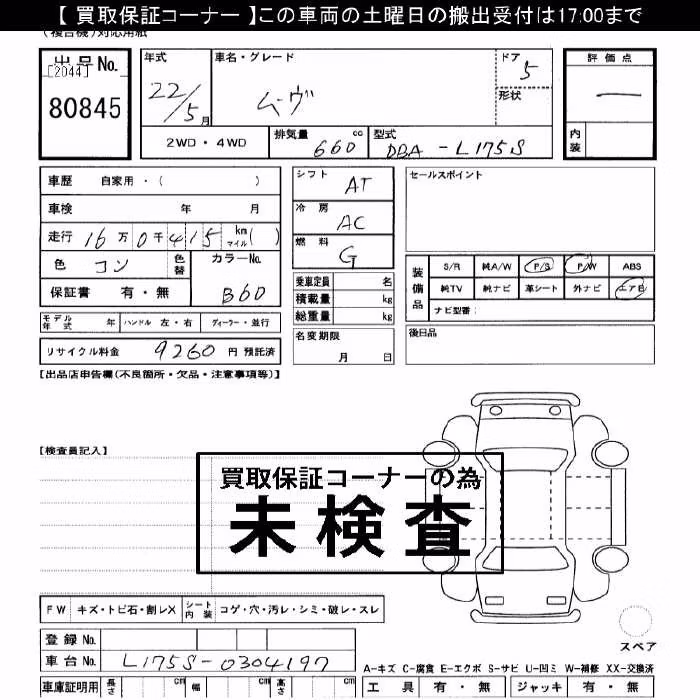 【 買取保証コーナー 】この車両の土曜日の搬出受付は17:00まで
(複合機)対応用紙
出品No.
[2044]
80845
年式
22/5月
車名・グレード
ムーヴ
ドア 5
形状
評価点
—
内装
2WD・4WD
排気量 660 cc
型式 DBA-L175S
車歴 自家用・( )
車検 年 月
走行 16万0千415 km マイル( )
色 コン 色替
カラーNo. B60
保証書 有・無
シフト AT
冷房 AC
燃料 G
乗車定員 名
積載量 kg
総重量 kg
名変期限
月 日
セールスポイント
装備品
S/R 純A/W P/S P/W ABS
純TV 純ナビ 革シート 外ナビ エアB
ナビ型番:
後日品
モデル年式 年 ハンドル 左・右 ディーラー・並行
リサイクル料金 9260 円 預託済
【出品店申告欄(不良箇所・欠品・注意事項等)】
【検査員記入】
買取保証コーナーの為
未検査
FW キズ・トビ石・割レX シート内装 コゲ・穴・汚レ・シミ・破レ・スレ
登録No.
車台No. L175S-0304197
車庫証明用 長さ cm 幅 cm 高さ cm
スペア
A-キズ C-腐食 E-エクボ S-サビ U-凹ミ W-補修 XX-交換済
工具 有・無 ジャッキ 有・無